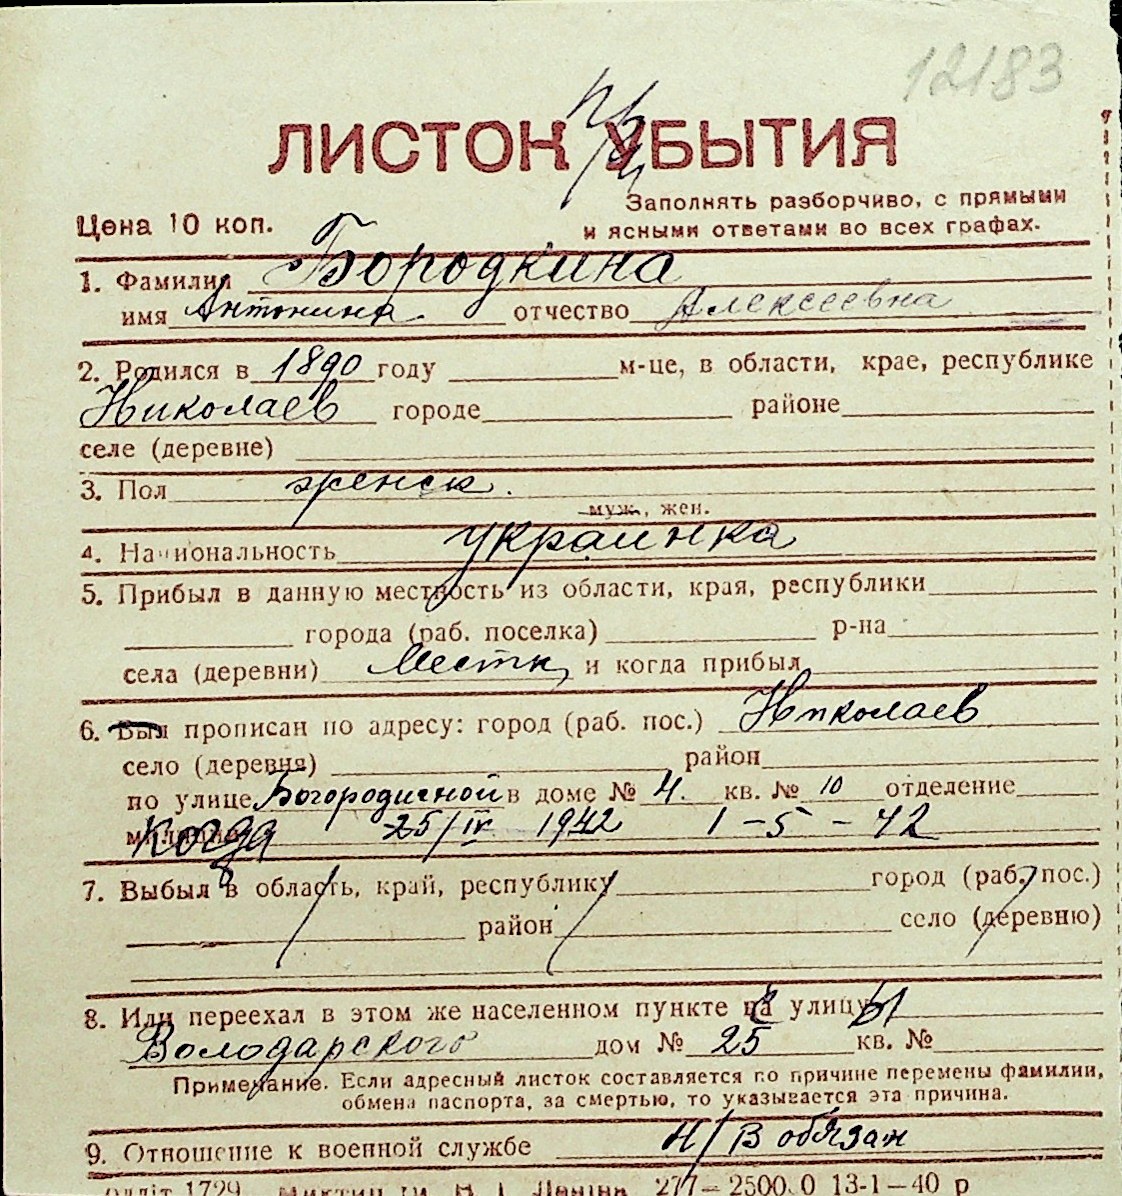 12183
ЛИСТОК УБЫТИЯ
при
Заполнять разборчиво, с прямыми
Цена 10 коп. и ясными ответами во всех графах.
1. Фамилия Бородкина
имя Антонина отчество Алексеевна
2. Родился в 1890 году м-це, в области, крае, республике
Николаев городе районе
селе (деревне)
3. Пол женск.
муж., жен.
4. Национальность украинка
5. Прибыл в данную местность из области, края, республики
города (раб. поселка) р-на
села (деревни) Местн, и когда прибыл
6. Был прописан по адресу: город (раб. пос.) Николаев
село (деревня) район
по улице Богородичной в доме № 4. кв. № 10 отделение
милиции Когда 25/IV 1942 1-5-42
7. Выбыл в область, край, республику город (раб. пос.)
район село (деревню)
8. Или переехал в этом же населенном пункте на улицу
Володарского дом № 25 кв. №
Примечание. Если адресный листок составляется по причине перемены фамилии,
обмена паспорта, за смертью, то указывается эта причина.
9. Отношение к военной службе н/в обязан
1729 277—2500.0 13-1—40 р